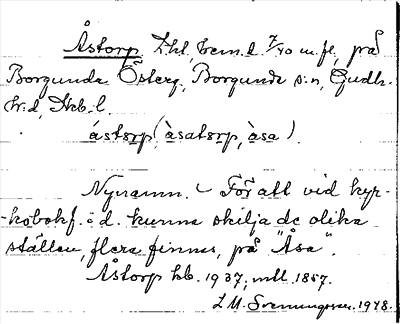 Åstorp Lhl, hem.d. 7/40 m.fl, på
Borgunda Österg., Borgunda s:n, Gudh.
h:d, Skb.l.
åstɷrp, (åsatɷrp, åsa).
Nynamn. – För att vid kyr-
kobokf. o.d. kunna skilja de olika
ställen, flera finnas, på "Åsa".
Åstorp kb. 1937; mtl. 1857.
L M. Svenungsson. 1948.